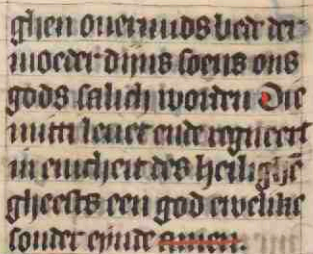 ghen ouermids bede der
moeder dijns soens ons
gods salich worden Die
mitti leuet ende regneert
in enicheit des heilighē
gheests een god ewelike
sonder eynde amen.